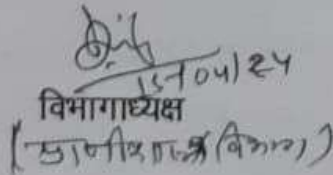 15/04/24
विभागाध्यक्ष
(प्राणीशास्त्र विभाग)